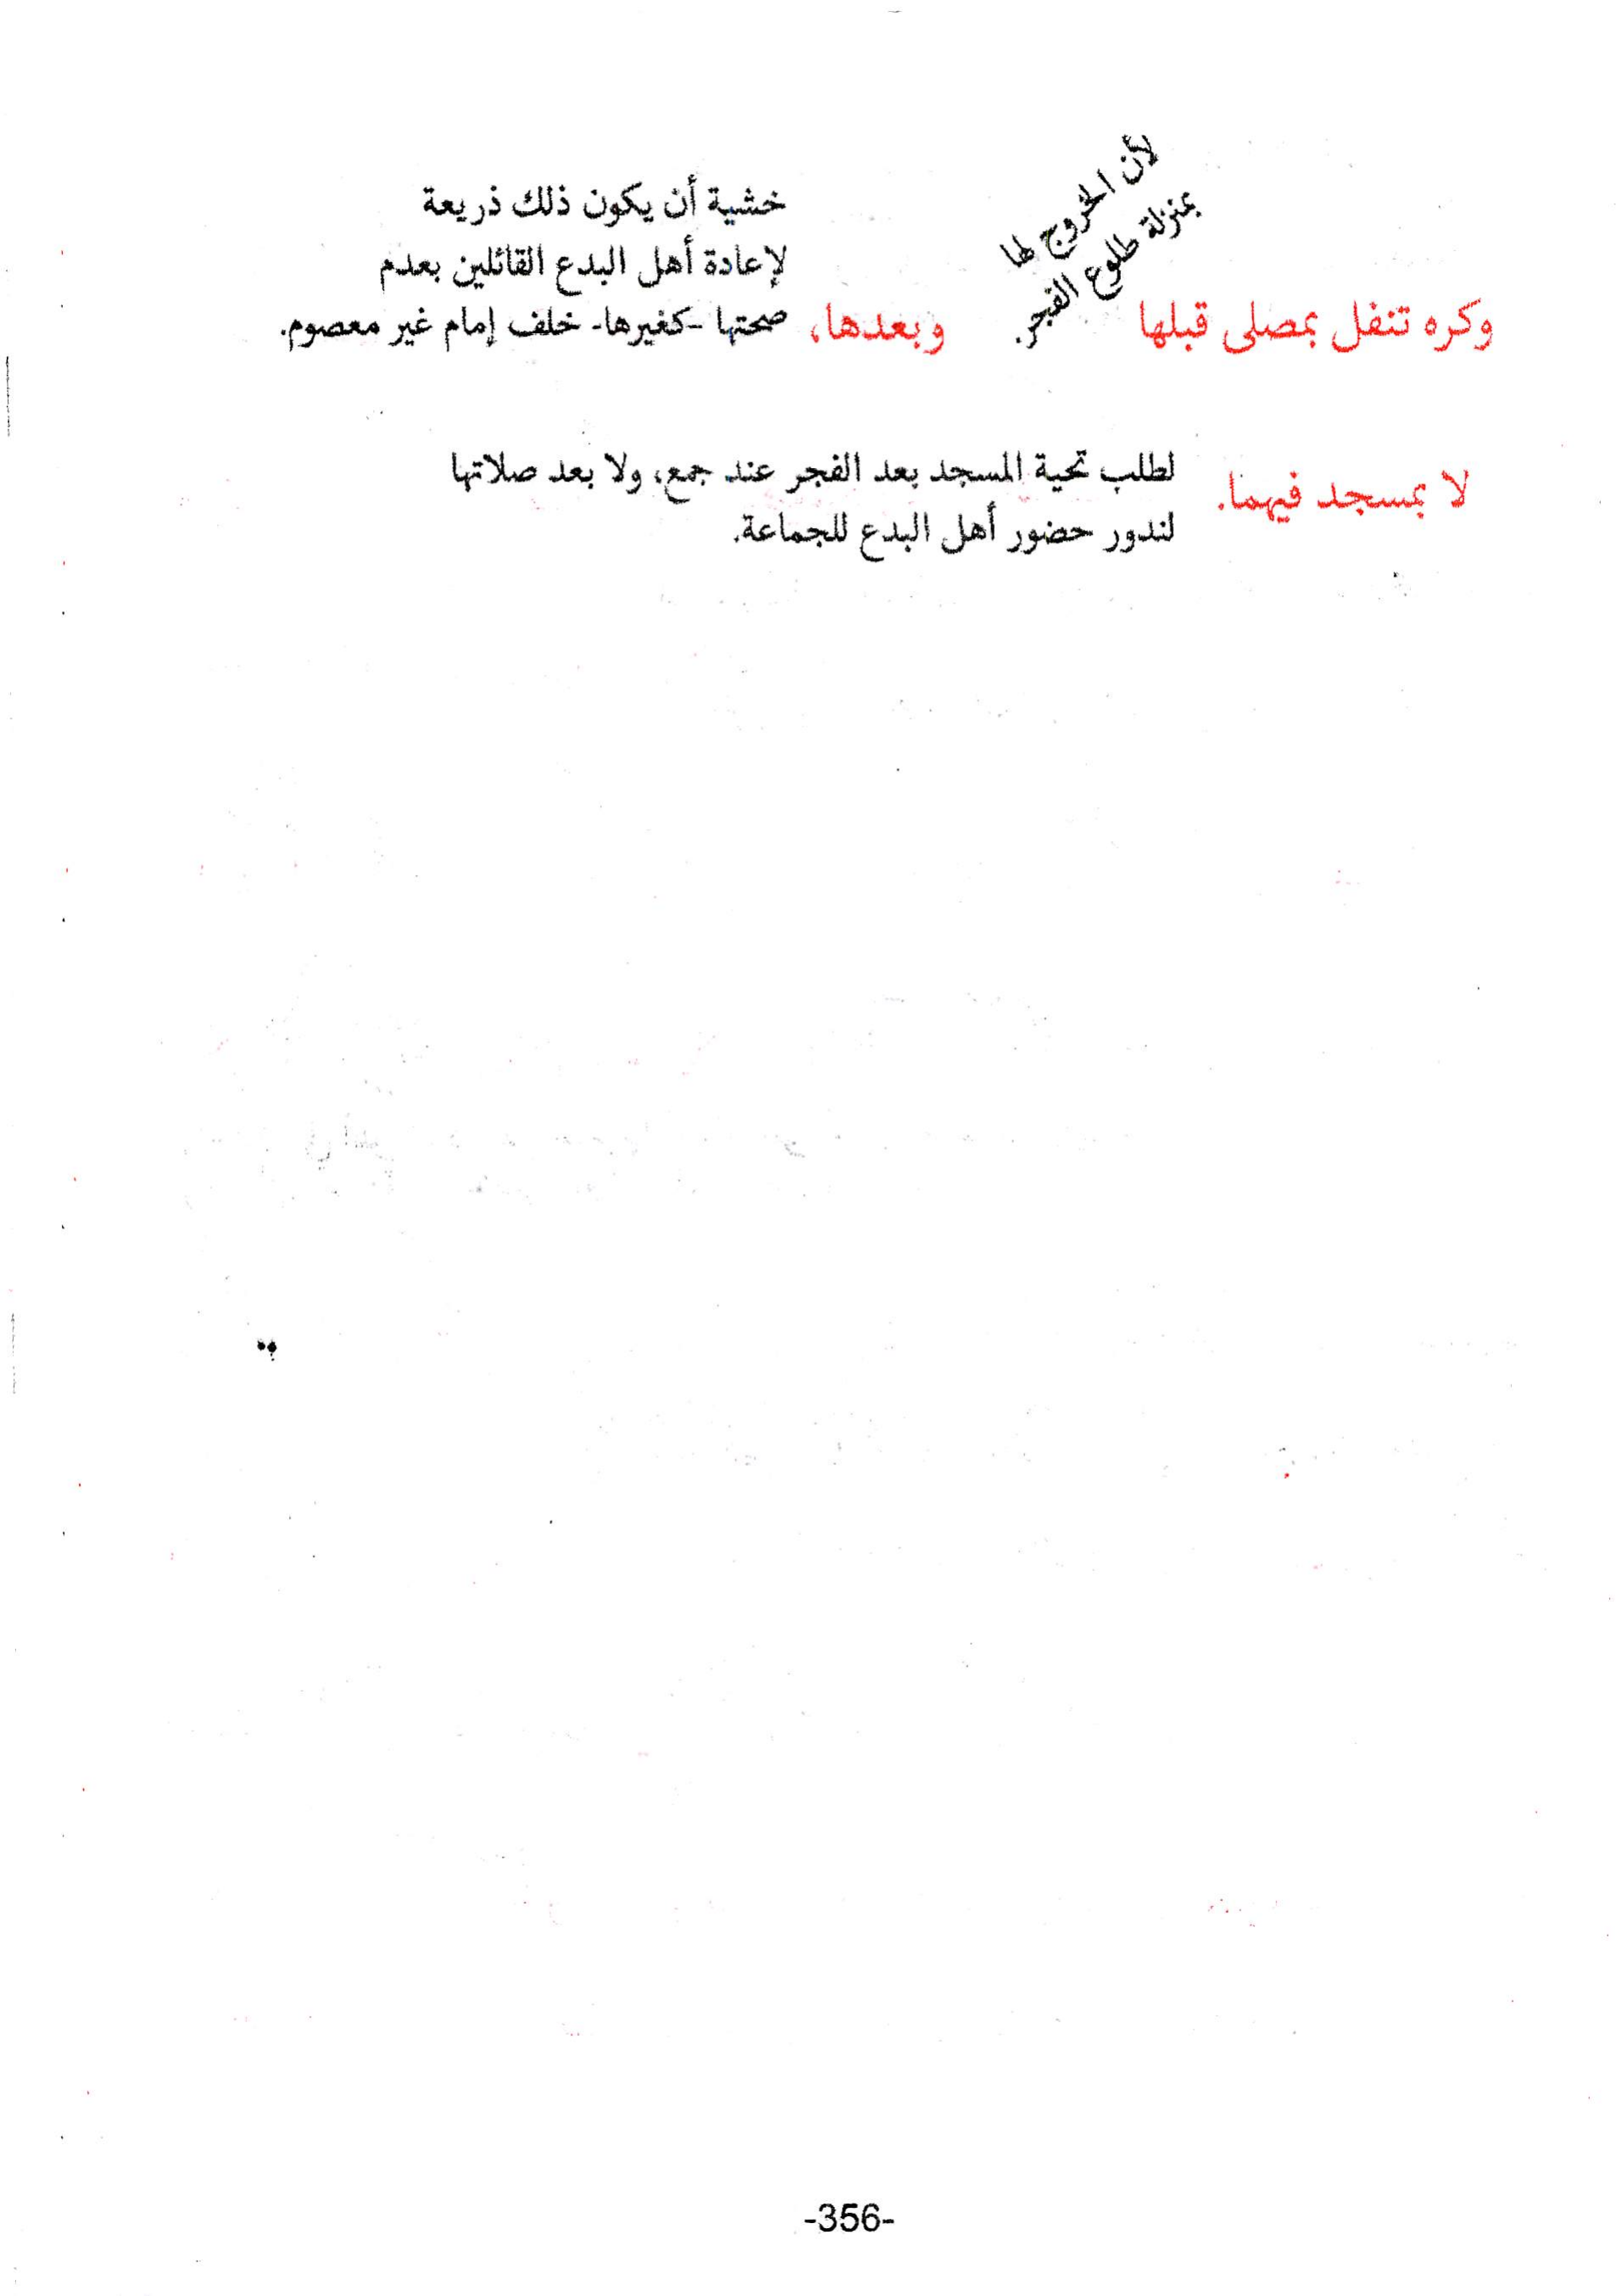 وكره تنفل بمصلى قبلها
لأن الخروج لها
بمنزلة طلوع الفجر.
وبعدها،
خشية أن يكون ذلك ذريعة
لإعادة أهل البدع القائلين بعدم
صحتها -كغيرها- خلف إمام غير معصوم.
لا بمسجد فيهما.
لطلب تحية المسجد بعد الفجر عند جمع، ولا بعد صلاتها
لندور حضور أهل البدع للجماعة.
-356-